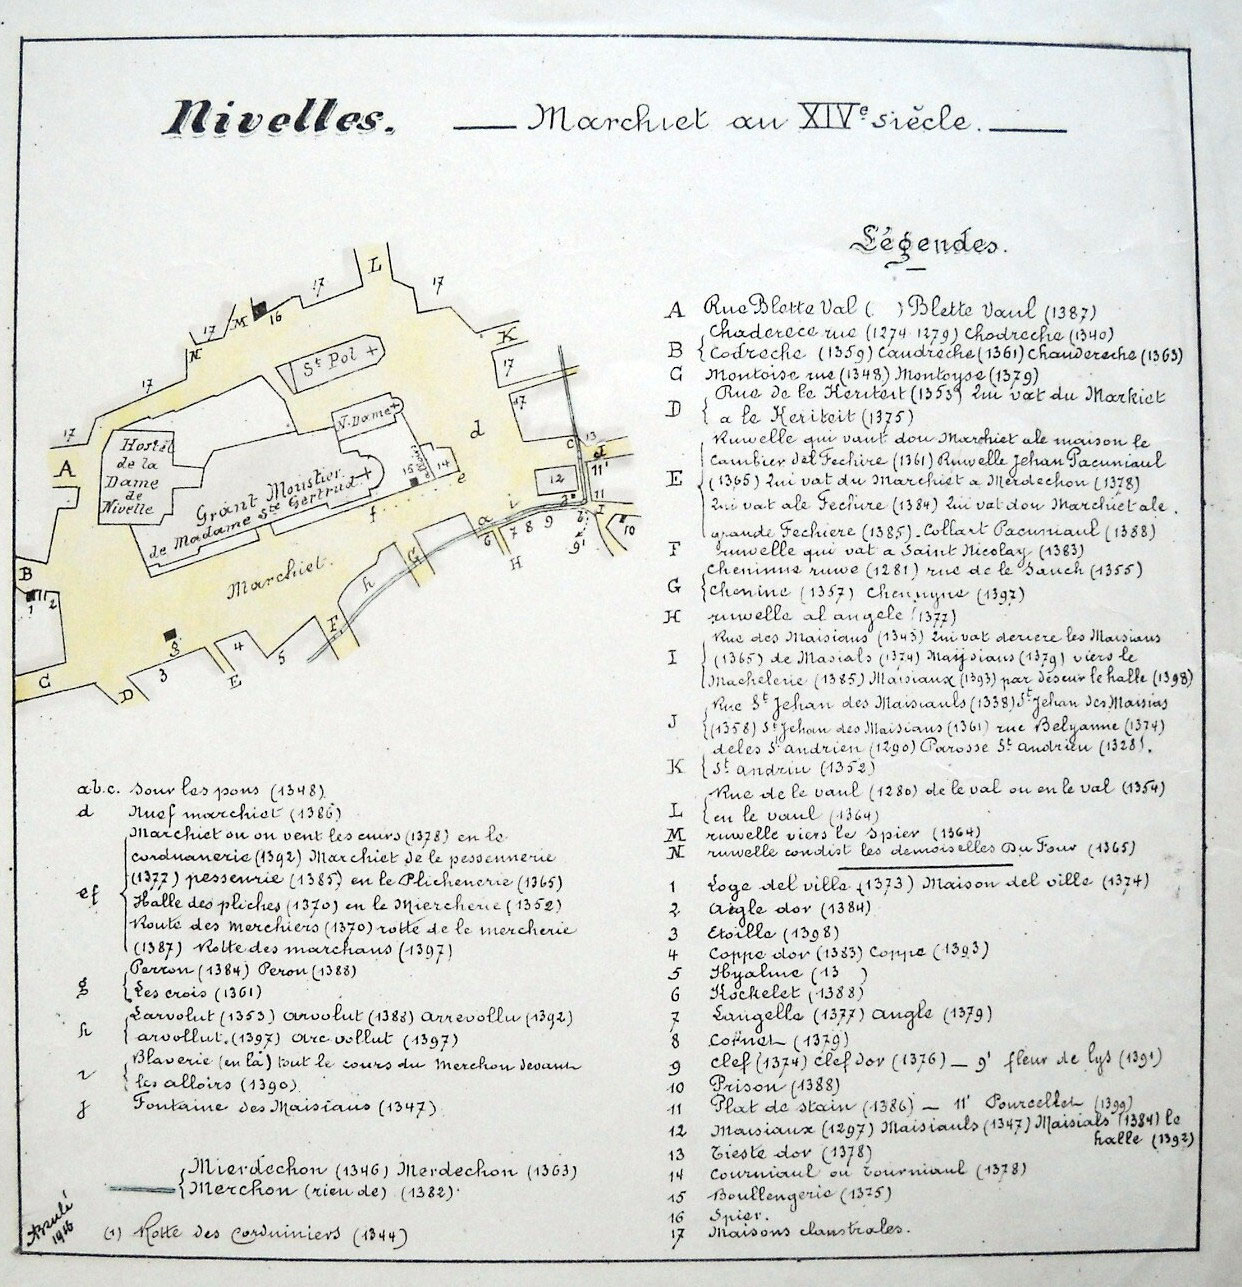 Nivelles. — Marchiet au XIVe siècle. —
Légendes.
L
17
17
M
16
17
N
K
17
St Pol
17
17
N. Dame
17
d
A
Hostel
de la
Dame
de
Nivelle
Grant Moustier
de Madame Ste Gertrud
15
14
e
f
c
13
J
11'
12
11
I
i
a
6
7
8
9
9'
10
H
B
1
2
Marchiet.
h
G
F
g
3
4
5
C
D
E
A Rue Blette Val ( ) Blette Vaul (1387)
Chaderece rue (1274 1279) Chodreche (1340)
B Codreche (1359) Caudreche (1361) Chaudereche (1363)
C Montoise rue (1348) Montoyse (1379)
Rue de le Keriteit (1353) Qui vat du Markiet
D a le Keriteit (1375)
Ruwelle qui vaut dou Marchiet ale maison le
Cambier del Fechire (1361) Ruwelle Jehan Pacuniaul
E (1365) Qui vat du Marchiet a Merdechon (1378)
Qui vat ale Fechire (1384) Qui vat dou Marchiet ale.
grande Fechiere (1385). Collart Pacuniaul (1388)
F ruwelle qui vat a Saint Nicolay (1383)
Cheninne ruwe (1281) rue de le Sauch (1355)
G Chenine (1357) Chenuyne (1397)
H ruwelle al angele (1377)
Rue des Maisiaus (1343) Qui vat deriere les Maisiaus
I (1365) de Masials (1374) Maijsiaus (1379) viers le
Machelerie (1385) Maisiaux (1393) par deseur le halle (1398)
Rue St Jehan des Maisiauls (1338) St Jehan des Maisias
J (1358) St Jehan des Maisiaus (1361) rue Belyanne (1374)
deles St andrien (1290) Parosse St andrieu (1328).
K St andriu (1352)
Rue de le vaul (1280) de le val ou en le val (1354)
L en le vaul (1364)
M ruwelle viers le spier (1364)
N ruwelle condist les demoiselles du Four (1365)
1 Loge del ville (1373) Maison del ville (1374)
2 Aigle dor (1384)
3 Etoille (1398)
4 Coppe dor (1383) Coppe (1393)
5 Hyalme (13 )
6 Kockelet (1388)
7 Langelle (1377) Angle (1379)
8 Cornet (1379)
9 Clef (1374) Clef dor (1376) — 9' fleur de lys (1391)
10 Prison (1388)
11 Plat de stain (1386) — 11' Pourcellet (1399)
12 Maisiaux (1297) Maisiauls (1347) Maisials (1384) le
halle (1392)
13 Tieste dor (1378)
14 Courniaul ou Tourniaul (1378)
15 Boullengerie (1375)
16 Spier.
17 Maisons claustrales.
a.b.c. Sour les pons (1348)
d Nuef marchiet (1386)
Marchiet ou on vent les cuirs (1378) en le
corduanerie (1392) Marchiet de le pessennerie
(1377) pessenrie (1385) en le Plichenerie (1365)
ef Halle des pliches (1370) en le Miercherie (1352)
Route des Merchiers (1370) rotte de le mercherie
(1387) Rotte des marchans (1397)
Perron (1384) Peron (1388)
g Les crois (1361)
Larvolut (1353) Arvolut (1388) Arrevollu (1392)
h arvollut. (1397) arc vollut (1397)
Blaverie (en là) tout le cours du Merchon devant
i les alloirs (1390)
j Fontaine des Maisiaus (1347)
Mierdechon (1346) Merdechon (1363)
Merchon (rieu de) (1382).
(1) Rotte des Corduiniers (1344)
1916